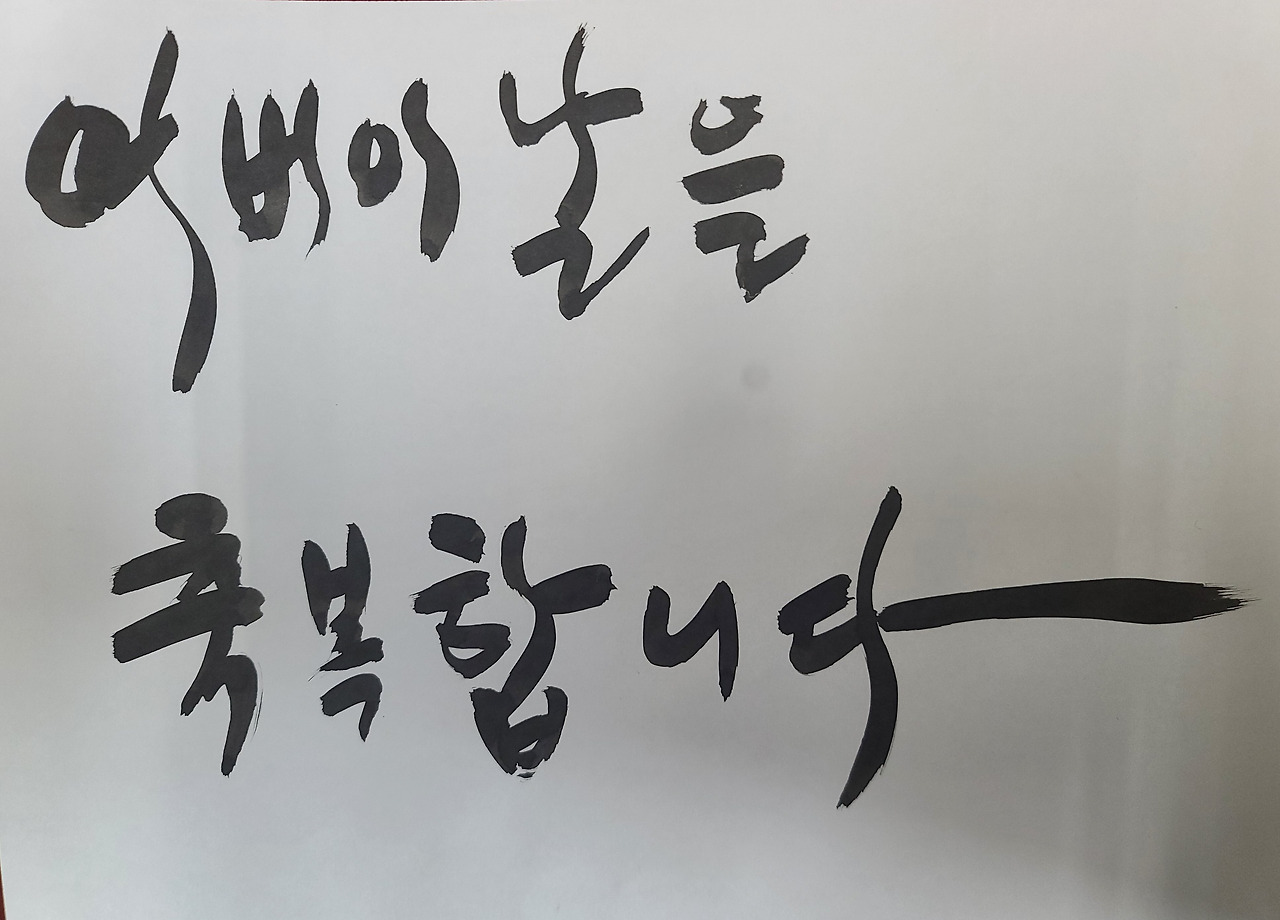 어버이날은
축복합니다